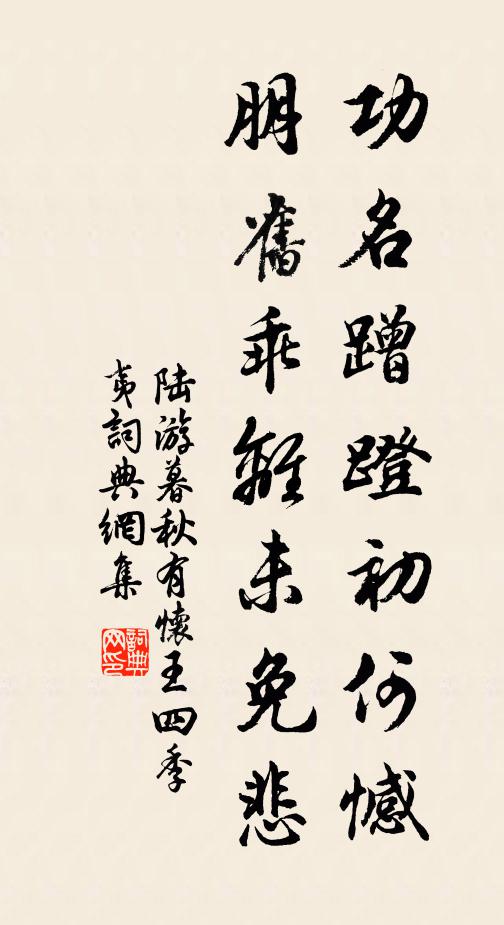 功名蹭蹬初何憾
朋舊乖離未免悲
陸游暮秋有懷王四季
夷詞典網集
詞典网印